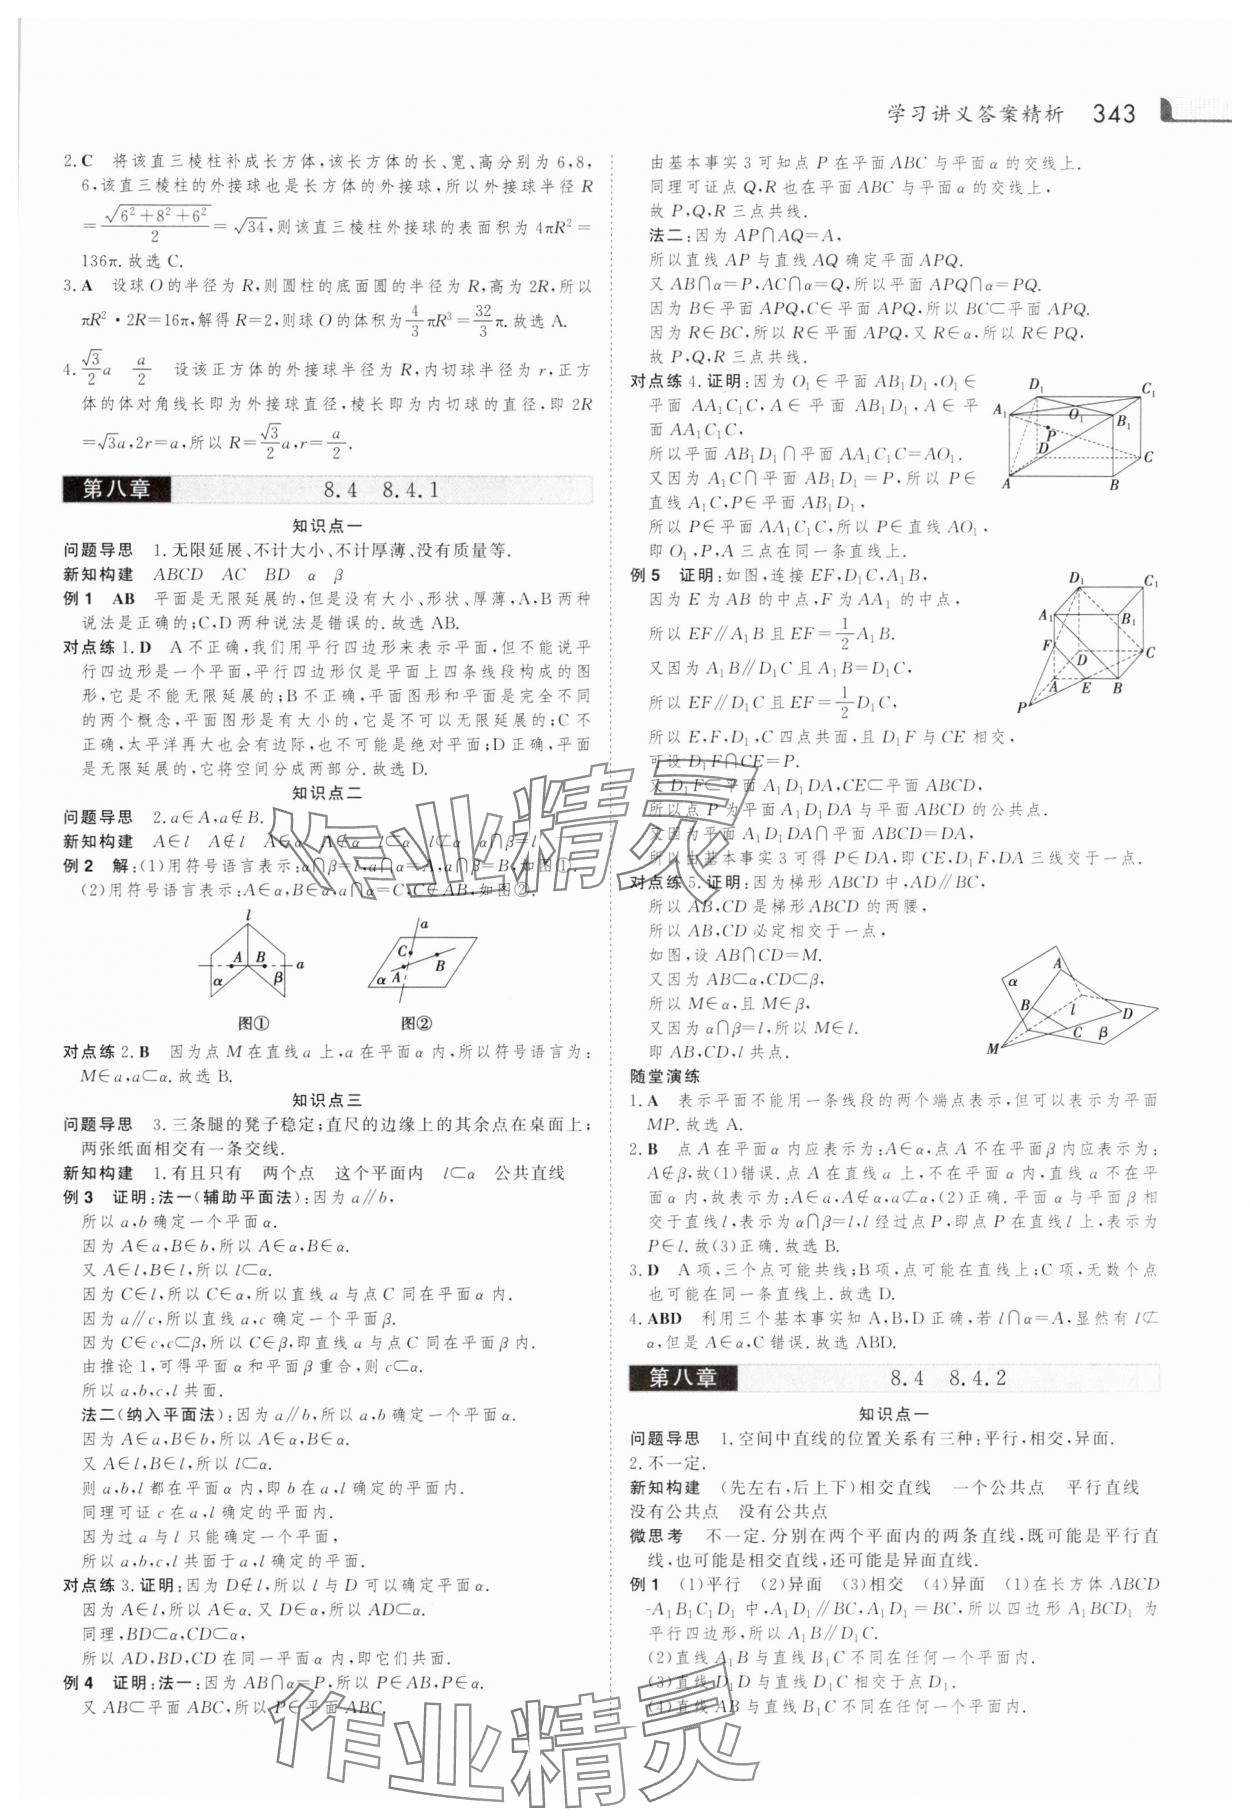 学习讲义答案精析 343
2.C 将该直三棱柱补成长方体,该长方体的长、宽、高分别为6,8,
6,该直三棱柱的外接球也是长方体的外接球,所以外接球半径R
=√(6²+8²+6²)/2=√34,则该直三棱柱外接球的表面积为4πR²=
136π.故选C.
3.A 设球O的半径为R,则圆柱的底面圆的半径为R,高为2R,所以
πR²·2R=16π,解得R=2,则球O的体积为4/3πR³=32/3π.故选A.
4.√3/2a a/2 设该正方体的外接球半径为R,内切球半径为r,正方
体的体对角线长即为外接球直径,棱长即为内切球的直径,即2R
=√3a,2r=a,所以R=√3/2a,r=a/2.
第八章 8.4 8.4.1
知识点一
问题导思 1.无限延展、不计大小、不计厚薄、没有质量等.
新知构建 ABCD AC BD α β
例1 AB 平面是无限延展的,但是没有大小、形状、厚薄,A,B两种
说法是正确的;C,D两种说法是错误的.故选AB.
对点练1.D A不正确,我们用平行四边形来表示平面,但不能说平
行四边形是一个平面,平行四边形仅是平面上四条线段构成的图
形,它是不能无限延展的;B不正确,平面图形和平面是完全不同
的两个概念,平面图形是有大小的,它是不可以无限延展的;C不
正确,太平洋再大也会有边际,也不可能是绝对平面;D正确,平面
是无限延展的,它将空间分成两部分.故选D.
知识点二
问题导思 2.a∈A,a∉B.
新知构建 A∈l A∉l A∈α A∉α l⊂α l⊄α α∩β=l
例2 解:(1)用符号语言表示:α∩β=l,a∩α=A,a∩β=B,如图①.
(2)用符号语言表示:A∈α,B∈α,a∩α=C,C∉AB,如图②.
l A B a α β
a C B A α
图① 图②
对点练2.B 因为点M在直线a上,a在平面α内,所以符号语言为:
M∈a,a⊂α.故选B.
知识点三
问题导思 3.三条腿的凳子稳定;直尺的边缘上的其余点在桌面上;
两张纸面相交有一条交线.
新知构建 1.有且只有 两个点 这个平面内 l⊂α 公共直线
例3 证明:法一(辅助平面法):因为a∥b,
所以a,b确定一个平面α.
因为A∈a,B∈b,所以A∈α,B∈α.
又A∈l,B∈l,所以l⊂α.
因为C∈l,所以C∈α,所以直线a与点C同在平面α内.
因为a∥c,所以直线a,c确定一个平面β.
因为C∈c,c⊂β,所以C∈β,即直线a与点C同在平面β内.
由推论1,可得平面α和平面β重合,则c⊂α.
所以a,b,c,l共面.
法二(纳入平面法):因为a∥b,所以a,b确定一个平面α.
因为A∈a,B∈b,所以A∈α,B∈α.
又A∈l,B∈l,所以l⊂α.
则a,b,l都在平面α内,即b在a,l确定的平面内.
同理可证c在a,l确定的平面内.
因为过a与l只能确定一个平面,
所以a,b,c,l共面于a,l确定的平面.
对点练3.证明:因为D∉l,所以l与D可以确定平面α.
因为A∈l,所以A∈α.又D∈α,所以AD⊂α.
同理,BD⊂α,CD⊂α,
所以AD,BD,CD在同一平面α内,即它们共面.
例4 证明:法一:因为AB∩α=P,所以P∈AB,P∈α.
又AB⊂平面ABC,所以P∈平面ABC.
由基本事实3可知点P在平面ABC与平面α的交线上.
同理可证点Q,R也在平面ABC与平面α的交线上,
故P,Q,R三点共线.
法二:因为AP∩AQ=A,
所以直线AP与直线AQ确定平面APQ.
又AB∩α=P,AC∩α=Q,所以平面APQ∩α=PQ.
因为B∈平面APQ,C∈平面APQ,所以BC⊂平面APQ.
因为R∈BC,所以R∈平面APQ,又R∈α,所以R∈PQ,
故P,Q,R三点共线.
对点练4.证明:因为O₁∈平面AB₁D₁,O₁∈
平面AA₁C₁C,A∈平面AB₁D₁,A∈平
面AA₁C₁C,
所以平面AB₁D₁∩平面AA₁C₁C=AO₁.
又因为A₁C∩平面AB₁D₁=P,所以P∈
直线A₁C,P∈平面AB₁D₁,
所以P∈平面AA₁C₁C,所以P∈直线AO₁,
即O₁,P,A三点在同一条直线上.
D₁ C₁ A₁ O₁ B₁ P D C A B
例5 证明:如图,连接EF,D₁C,A₁B,
因为E为AB的中点,F为AA₁的中点,
所以EF∥A₁B且EF=1/2A₁B.
又因为A₁B∥D₁C且A₁B=D₁C,
所以EF∥D₁C且EF=1/2D₁C,
所以E,F,D₁,C四点共面,且D₁F与CE相交,
可设D₁F∩CE=P.
又D₁F⊂平面A₁D₁DA,CE⊂平面ABCD,
所以点P为平面A₁D₁DA与平面ABCD的公共点.
又平面A₁D₁DA∩平面ABCD=DA,
所以由基本事实3可得P∈DA,即CE,D₁F,DA三线交于一点.
D₁ C₁ A₁ B₁ F D C A E B P
对点练5.证明:因为梯形ABCD中,AD∥BC,
所以AB,CD是梯形ABCD的两腰,
所以AB,CD必定相交于一点,
如图,设AB∩CD=M.
又因为AB⊂α,CD⊂β,
所以M∈α,且M∈β,
又因为α∩β=l,所以M∈l.
即AB,CD,l共点.
α A B l D C β M
随堂演练
1.A 表示平面不能用一条线段的两个端点表示,但可以表示为平面
MP.故选A.
2.B 点A在平面α内应表示为:A∈α,点A不在平面β内表示为:
A∉β,故(1)错误.点A在直线a上,不在平面α内,直线a不在平
面α内,故表示为:A∈a,A∉α,a⊄α,(2)正确.平面α与平面β相
交于直线l,表示为α∩β=l,l经过点P,即点P在直线l上,表示为
P∈l.故(3)正确.故选B.
3.D A项,三个点可能共线;B项,点可能在直线上;C项,无数个点
也可能在同一条直线上.故选D.
4.ABD 利用三个基本事实知A,B,D正确,若l∩α=A,显然有l⊄
α,但是A∈α,C错误.故选ABD.
第八章 8.4 8.4.2
知识点一
问题导思 1.空间中直线的位置关系有三种:平行,相交,异面.
2.不一定.
新知构建 (先左右,后上下)相交直线 一个公共点 平行直线
没有公共点 没有公共点
微思考 不一定.分别在两个平面内的两条直线,既可能是平行直
线,也可能是相交直线,还可能是异面直线.
例1 (1)平行 (2)异面 (3)相交 (4)异面 (1)在长方体ABCD
-A₁B₁C₁D₁中,A₁D₁∥BC,A₁D₁=BC,所以四边形A₁BCD₁为
平行四边形,所以A₁B∥D₁C.
(2)直线A₁B与直线B₁C不同在任何一个平面内.
(3)直线D₁D与直线D₁C相交于点D₁.
(4)直线AB与直线B₁C不同在任何一个平面内.
作业精灵
作业精灵